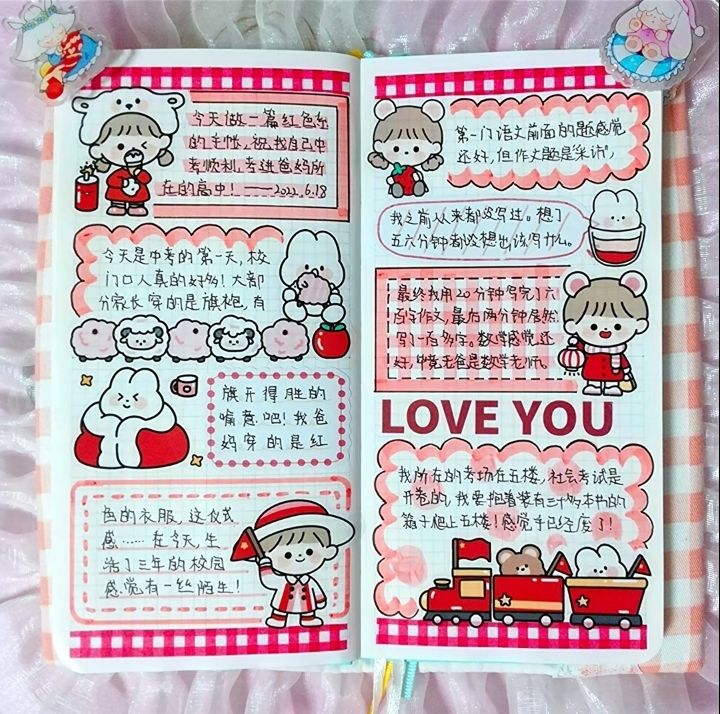 今天做一篇红色系
的手帐,祝我自己中
考顺利,考进爸妈所
在的高中!——2022.6.18
今天是中考的第一天,校
门口人真的好多!大部
分家长穿的是旗袍,有
旗开得胜的
喻意吧!我爸
妈穿的是红
色的衣服,这仪式
感……在今天,生
活了三年的校园
感觉有一丝陌生!
第一门语文前面的题感觉
还好,但作文题是“采访”,
我之前从来都没写过。想了
五六分钟都没想出该写什么。
最终我用20分钟写完了六
百字作文,最后两分钟居然
写了一百多字。数学感觉还
好,毕竟老爸是数学老师。
LOVE YOU
我所在的考场在五楼,社会考试是
开卷的,我要抱着装有三十多本书的
箱子爬上五楼!感觉手已经废了!